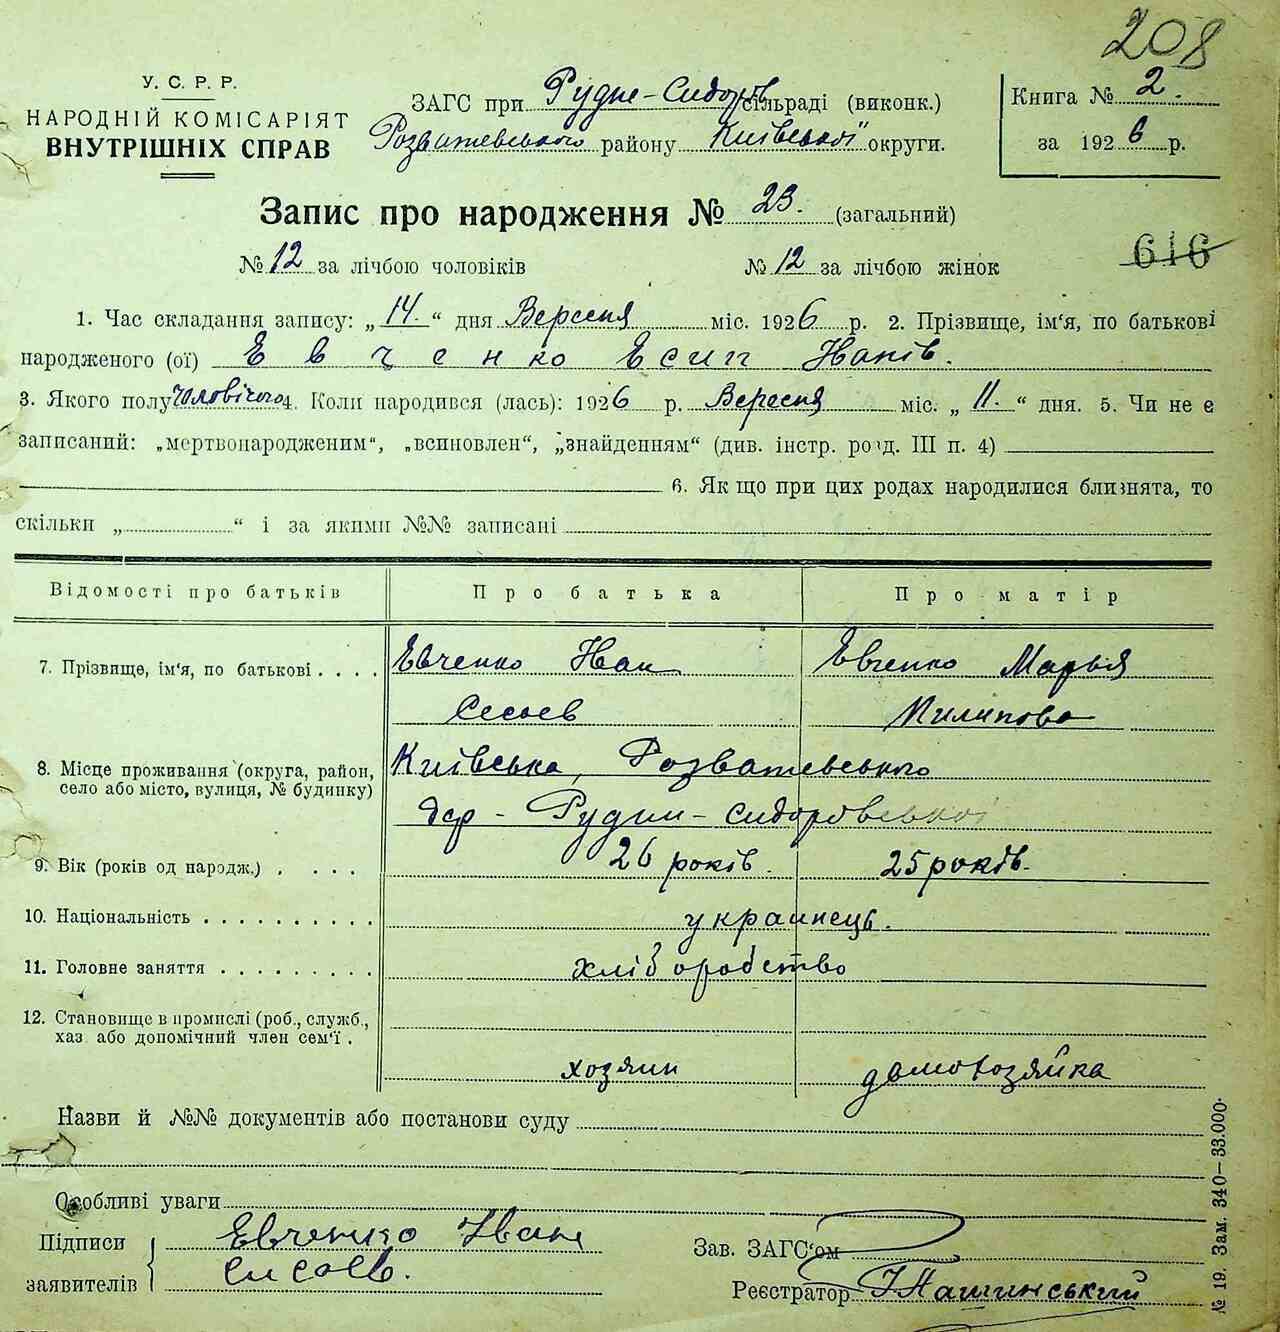 208
У. С. Р. Р.
НАРОДНІЙ КОМІСАРІЯТ
ВНУТРІШНІХ СПРАВ
ЗАГС при Рудне-Сидорів сільраді (виконк.)
Розватевського району Київської округи.
Книга № 2.
за 1926 р.
Запис про народження № 23. (загальний)
№ 12 за лічбою чоловіків № 12 за лічбою жінок
616
1. Час складання запису: „14.“ дня Вересня міс. 1926 р. 2. Прізвище, ім‘я, по батькові
народженого (ої) Евченко Есип Ив
3. Якого полу чоловічого 4. Коли народився (лась): 1926 р. Вересня міс. „11.“ дня. 5. Чи не є
записаний: „мертвонародженим“, „всиновлен“, „знайденням“ (див. інстр. розд. III п. 4)
6. Як що при цих родах народилися близнята, то
скільки „ “ і за якими №№ записані
Відомості про батьків Про батька Про матір
7. Прізвище, ім‘я, по батькові . . . . Евченко Иван Евченко Марья
Сисоев Пилипова
8. Місце проживання (округа, район,
село або місто, вулиця, № будинку)
Київська, Розватевського
дер - Рудни - Сидоровської
9. Вік (років од народж.) . . . . 26 років. 25 років.
10. Національність . . . . . . . . . . украинець.
11. Головне заняття . . . . . . . . . хліборобство
12. Становище в промислі (роб., служб.,
хаз. або допомічний член сем‘ї .
хозяин домохозяйка
Назви й №№ документів або постанови суду
Особливі уваги
Підписи
заявителів
Евченко Иван
Сисоев.
Зав. ЗАГС‘ом
Реєстратор
№ 19. Зам. 340—33.000.